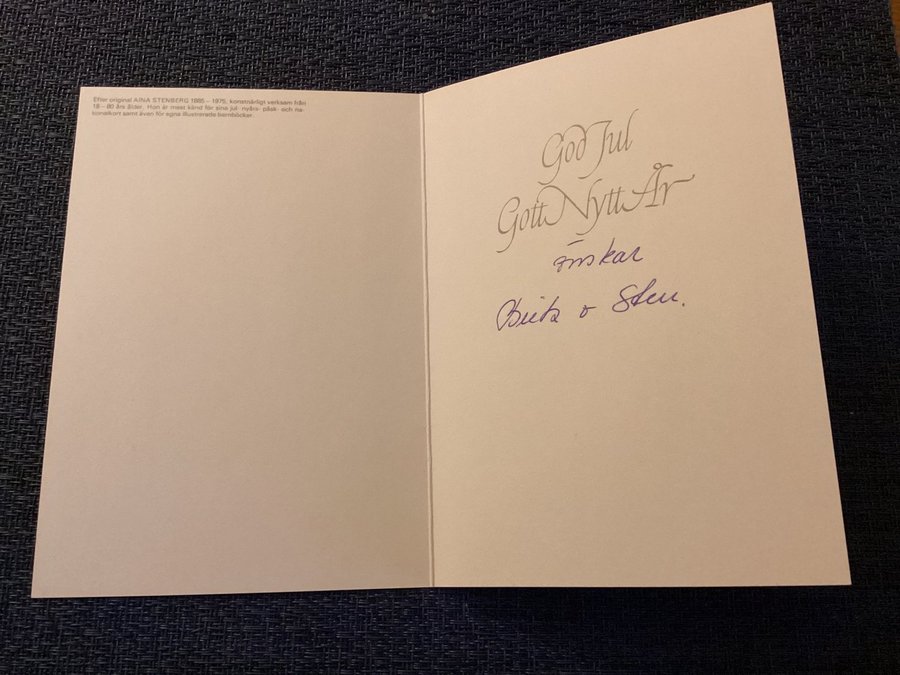 Efter original AINA STENBERG 1885 – 1975, konstnärligt verksam från
18 – 80 års ålder. Hon är mest känd för sina jul- nyårs- påsk- och na-
tionalkort samt även för egna illustrerade barnböcker.
God Jul
Gott Nytt År
önskar
o Sten.